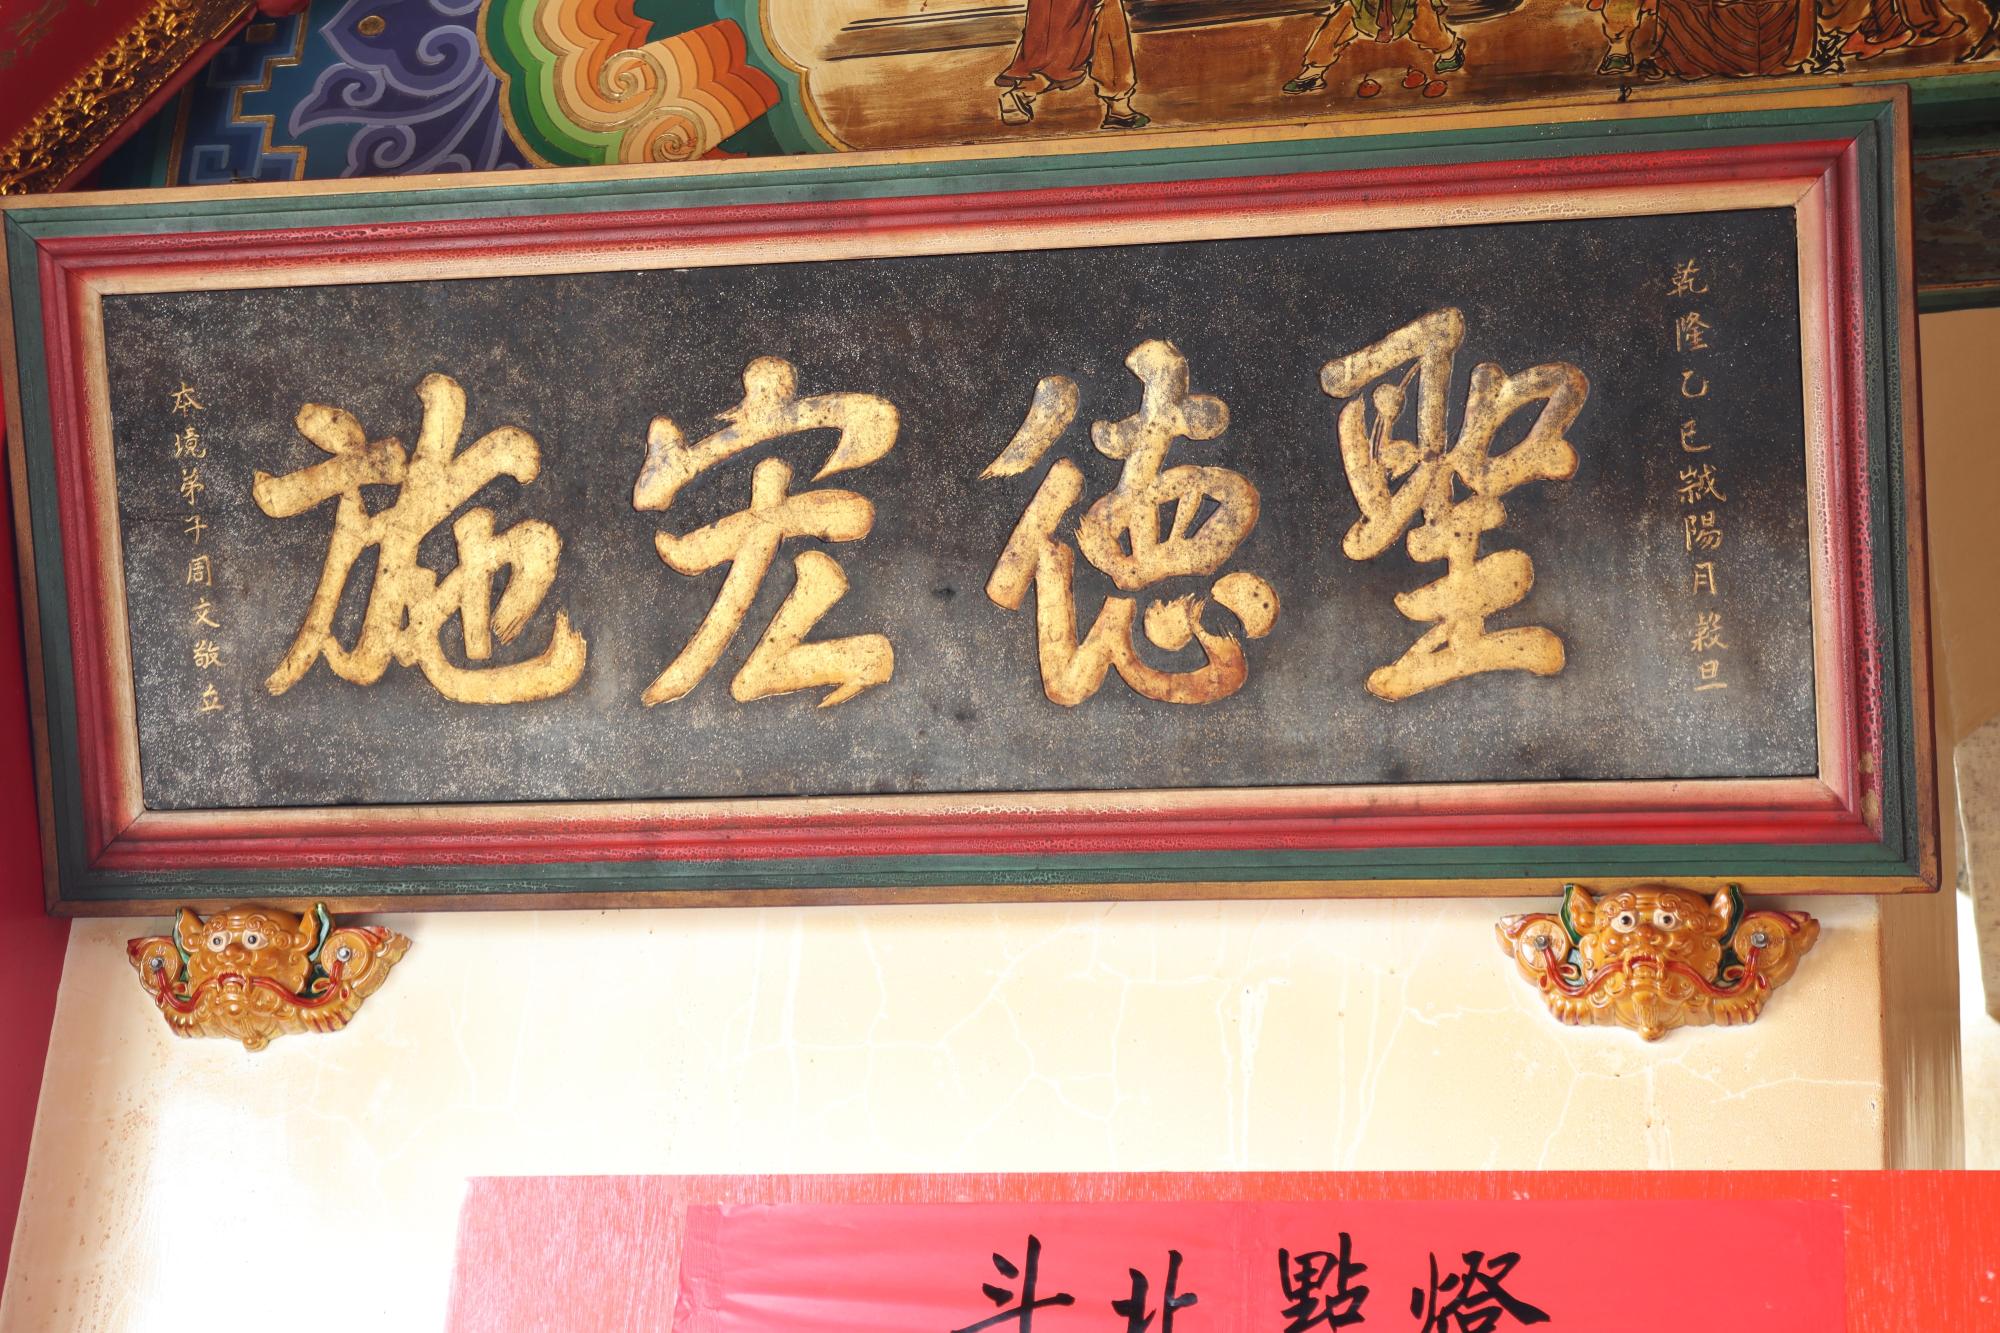 乾隆乙巳瓻陽月穀旦
聖德宏施
本境弟子周文敬立
燈點北斗